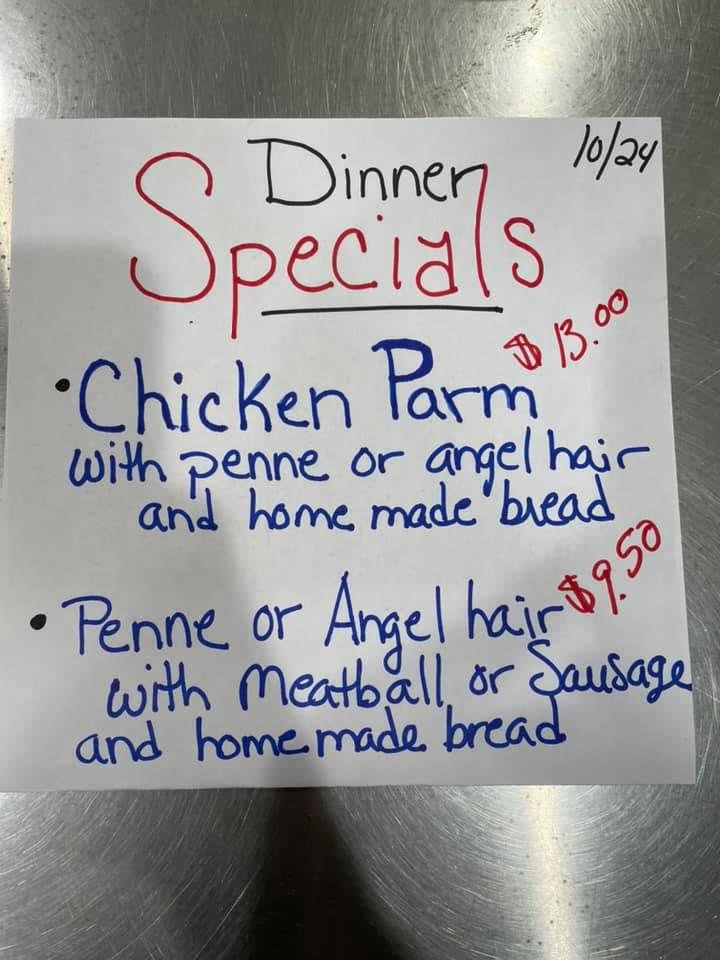 10/24
Dinner
Specials
$13.00
• Chicken Parm
with penne or angel hair
and home made bread
$9.50
• Penne or Angel hair
with Meatball or Sausage
and home made bread